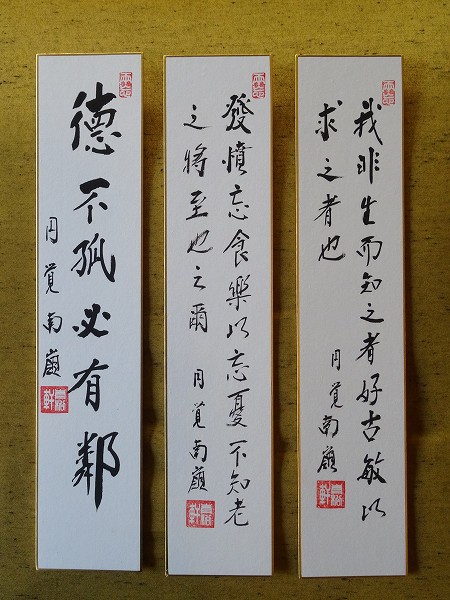 我非生而知之者好古敏以
求之者也
円覚南嶺
發憤忘食樂以忘憂不知老
之將至也云爾
円覚南嶺
德不孤必有鄰
円覚南嶺